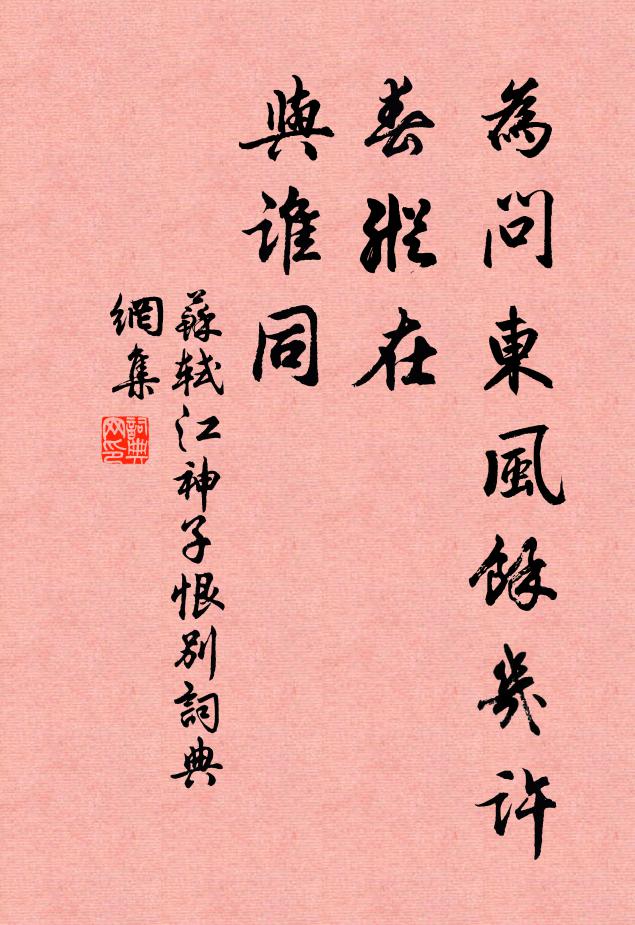 為問東風餘幾許
春縱在
與誰同
蘇軾江神子恨別詞典
網集
詞典
网印